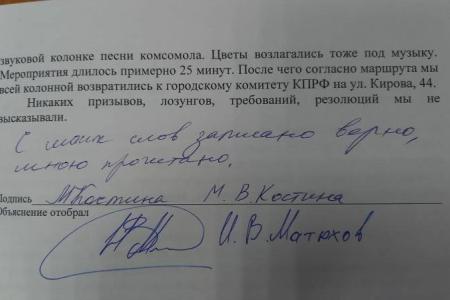 звуковой колонке песни комсомола. Цветы возлагались тоже под музыку.
Мероприятия длилось примерно 25 минут. После чего согласно маршрута мы
всей колонной возвратились к городскому комитету КПРФ на ул. Кирова, 44.
Никаких призывов, лозунгов, требований, резолюций мы не
высказывали.
С моих слов записано верно,
мною прочитано.
Подпись МКостина М. В. Костина
Объяснение отобрал
И. В. Матюхов